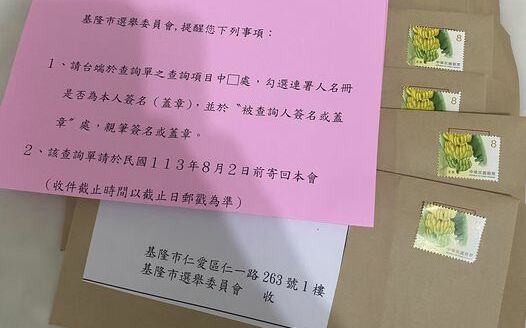 基隆市選舉委員會,提醒您下列事項：
1、請台端於查詢單之查詢項目中□處，勾選連署人名冊
是否為本人簽名（蓋章），並於〝被查詢人簽名或蓋
章〞處，親筆簽名或蓋章。
2、該查詢單請於民國113年8月2日前寄回本會
（收件截止時間以截止日郵戳為準）
基隆市仁愛區仁一路263號1樓
基隆市選舉委員會 收
8
8
8
8